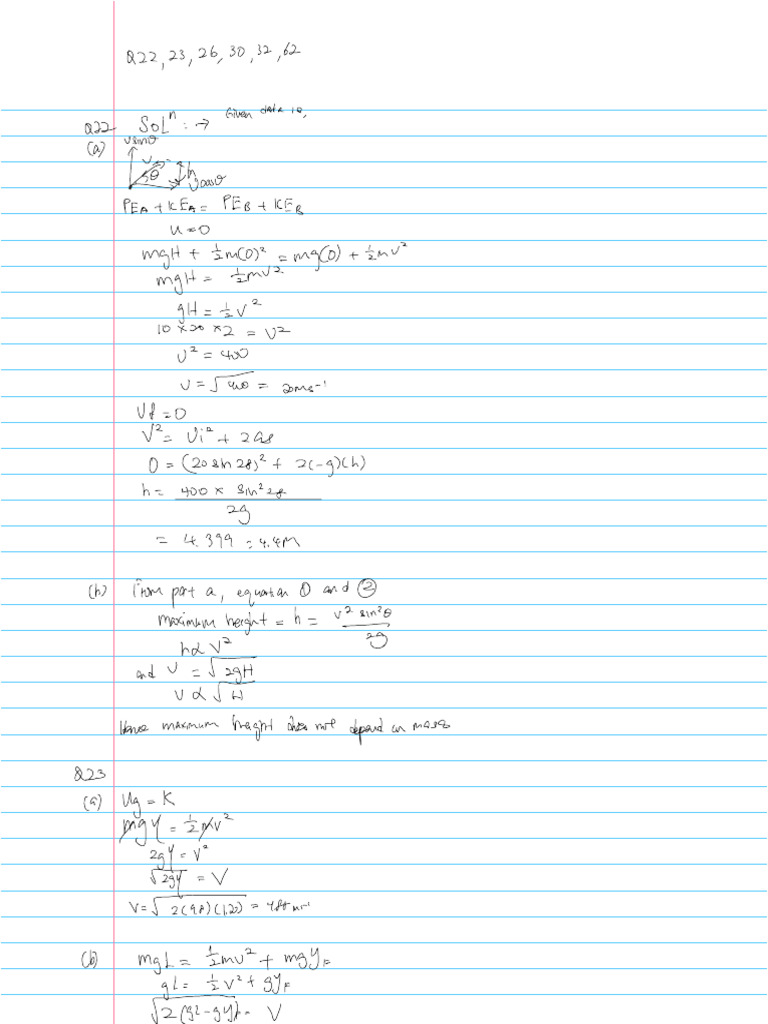 Q22, 23, 26, 30, 32, 62
Q22 SOLⁿ :→ Given data is,
(a) vsinθ
v
θ h
vcosθ
PE_A + KE_A = PE_B + KE_B
u=0
mgH + ½m(0)² = mg(0) + ½mv²
mgH = ½mv²
gH = ½v²
10 × 20 × 2 = v²
v² = 400
v = √400 = 20ms⁻¹
Vf = 0
V² = Vi² + 2as
0 = (20 sin 28)² + 2(-g)(h)
h = 400 × sin² 28 / 2g
= 4.399 = 4.4m
(b) From part a, equation ① and ②
maximum height = h = v² sin²θ / 2g
h ∝ V²
and V = √2gH
V ∝ √H
Hence maximum height does not depend on mass
Q23
(a) Ug = K
mgY = ½mv²
2gY = V²
√2gY = V
V = √2(9.8)(1.20) = 4.85 ms⁻¹
(b) mgL = ½mv² + mgY_F
gL = ½v² + gY_F
√2(gL - gY) = V